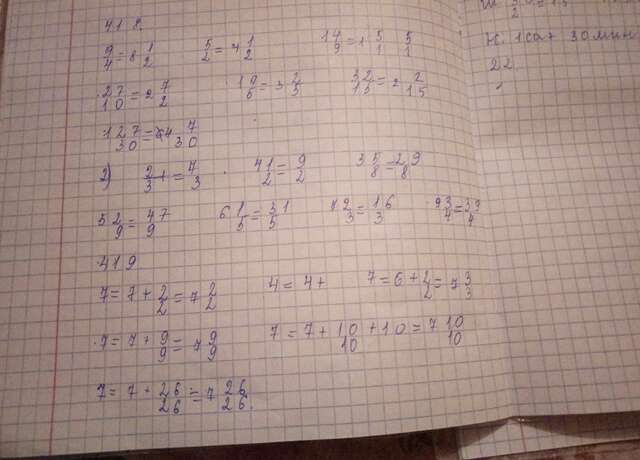 418.
9/4 = 8 1/2   5/2 = 4 1/2   14/9 = 1 5/1 5/1
27/10 = 2 7/2   19/5 = 3 2/5   32/15 = 2 2/15
127/30 = 4 7/30
2) 2/3 + = 4/3   4 1/2 = 9/2   3 5/8 = 29/8
5 2/9 = 47/9   6 1/5 = 31/5   2/3 = 16/3   9 3/4 = 39/4
419
7 = 7 + 2/2 = 7 2/2   4 = 4 +   7 = 6 + 2/2 = 7 3/3
7 = 7 + 9/9 = 7 9/9   7 = 7 + 10/10 + 10 = 7 10/10
7 = 7 + 26/26 = 7 26/26.
30 мин
22